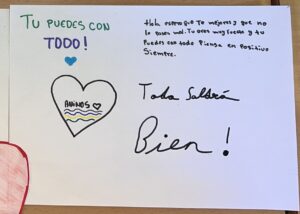 TU PUEDES CON
TODO!
Hola espero que te mejores y que no
lo pases mal. Tu eres muy fuerte y tu
Puedes con todo Piensa en Positivo
Siempre.
ANIMOS
Todo Saldrá
Bien!